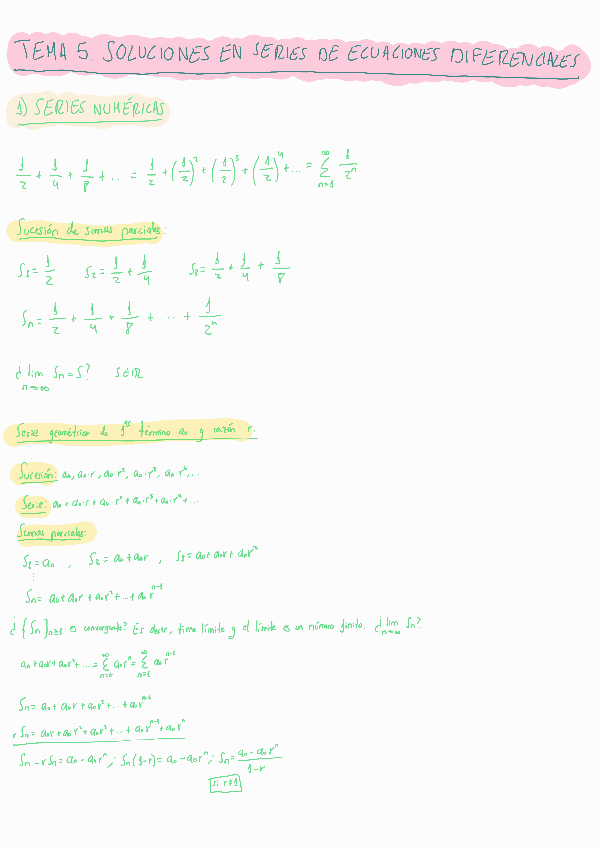 TEMA 5. SOLUCIONES EN SERIES DE ECUACIONES DIFERENCIALES
1) SERIES NUMÉRICAS
1/2 + 1/4 + 1/8 + ... = 1/2 + (1/2)^2 + (1/2)^3 + (1/2)^4 + ... = ∑_{n=1}^{∞} 1/2^n
Sucesión de sumas parciales:
S_1 = 1/2 S_2 = 1/2 + 1/4 S_3 = 1/2 + 1/4 + 1/8
S_n = 1/2 + 1/4 + 1/8 + ... + 1/2^n
¿ lim_{n→∞} S_n = S? S∈ℝ
Serie geométrica de 1er término a_0 y razón r.
Sucesión: a_0, a_0·r, a_0·r^2, a_0·r^3, a_0·r^4, ...
Serie: a_0 + a_0·r + a_0·r^2 + a_0·r^3 + a_0·r^4 + ...
Sumas parciales:
S_1 = a_0 , S_2 = a_0 + a_0r , S_3 = a_0 + a_0r + a_0r^2
⋮
S_n = a_0 + a_0r + a_0r^2 + ... + a_0r^{n-1}
¿{S_n}_{n≥1} es convergente? Es decir, tiene límite y el límite es un número finito. ¿ lim_{n→∞} S_n?
a_0 + a_0r + a_0r^2 + ... = ∑_{n=0}^{∞} a_0r^n = ∑_{n=1}^{∞} a_0r^{n-1}
S_n = a_0 + a_0r + a_0r^2 + ... + a_0r^{n-1}
r S_n = a_0r + a_0r^2 + a_0r^3 + ... + a_0r^{n-1} + a_0r^n
S_n - r S_n = a_0 - a_0r^n ; S_n(1-r) = a_0 - a_0r^n ; S_n = (a_0 - a_0r^n)/(1-r)
si r≠1